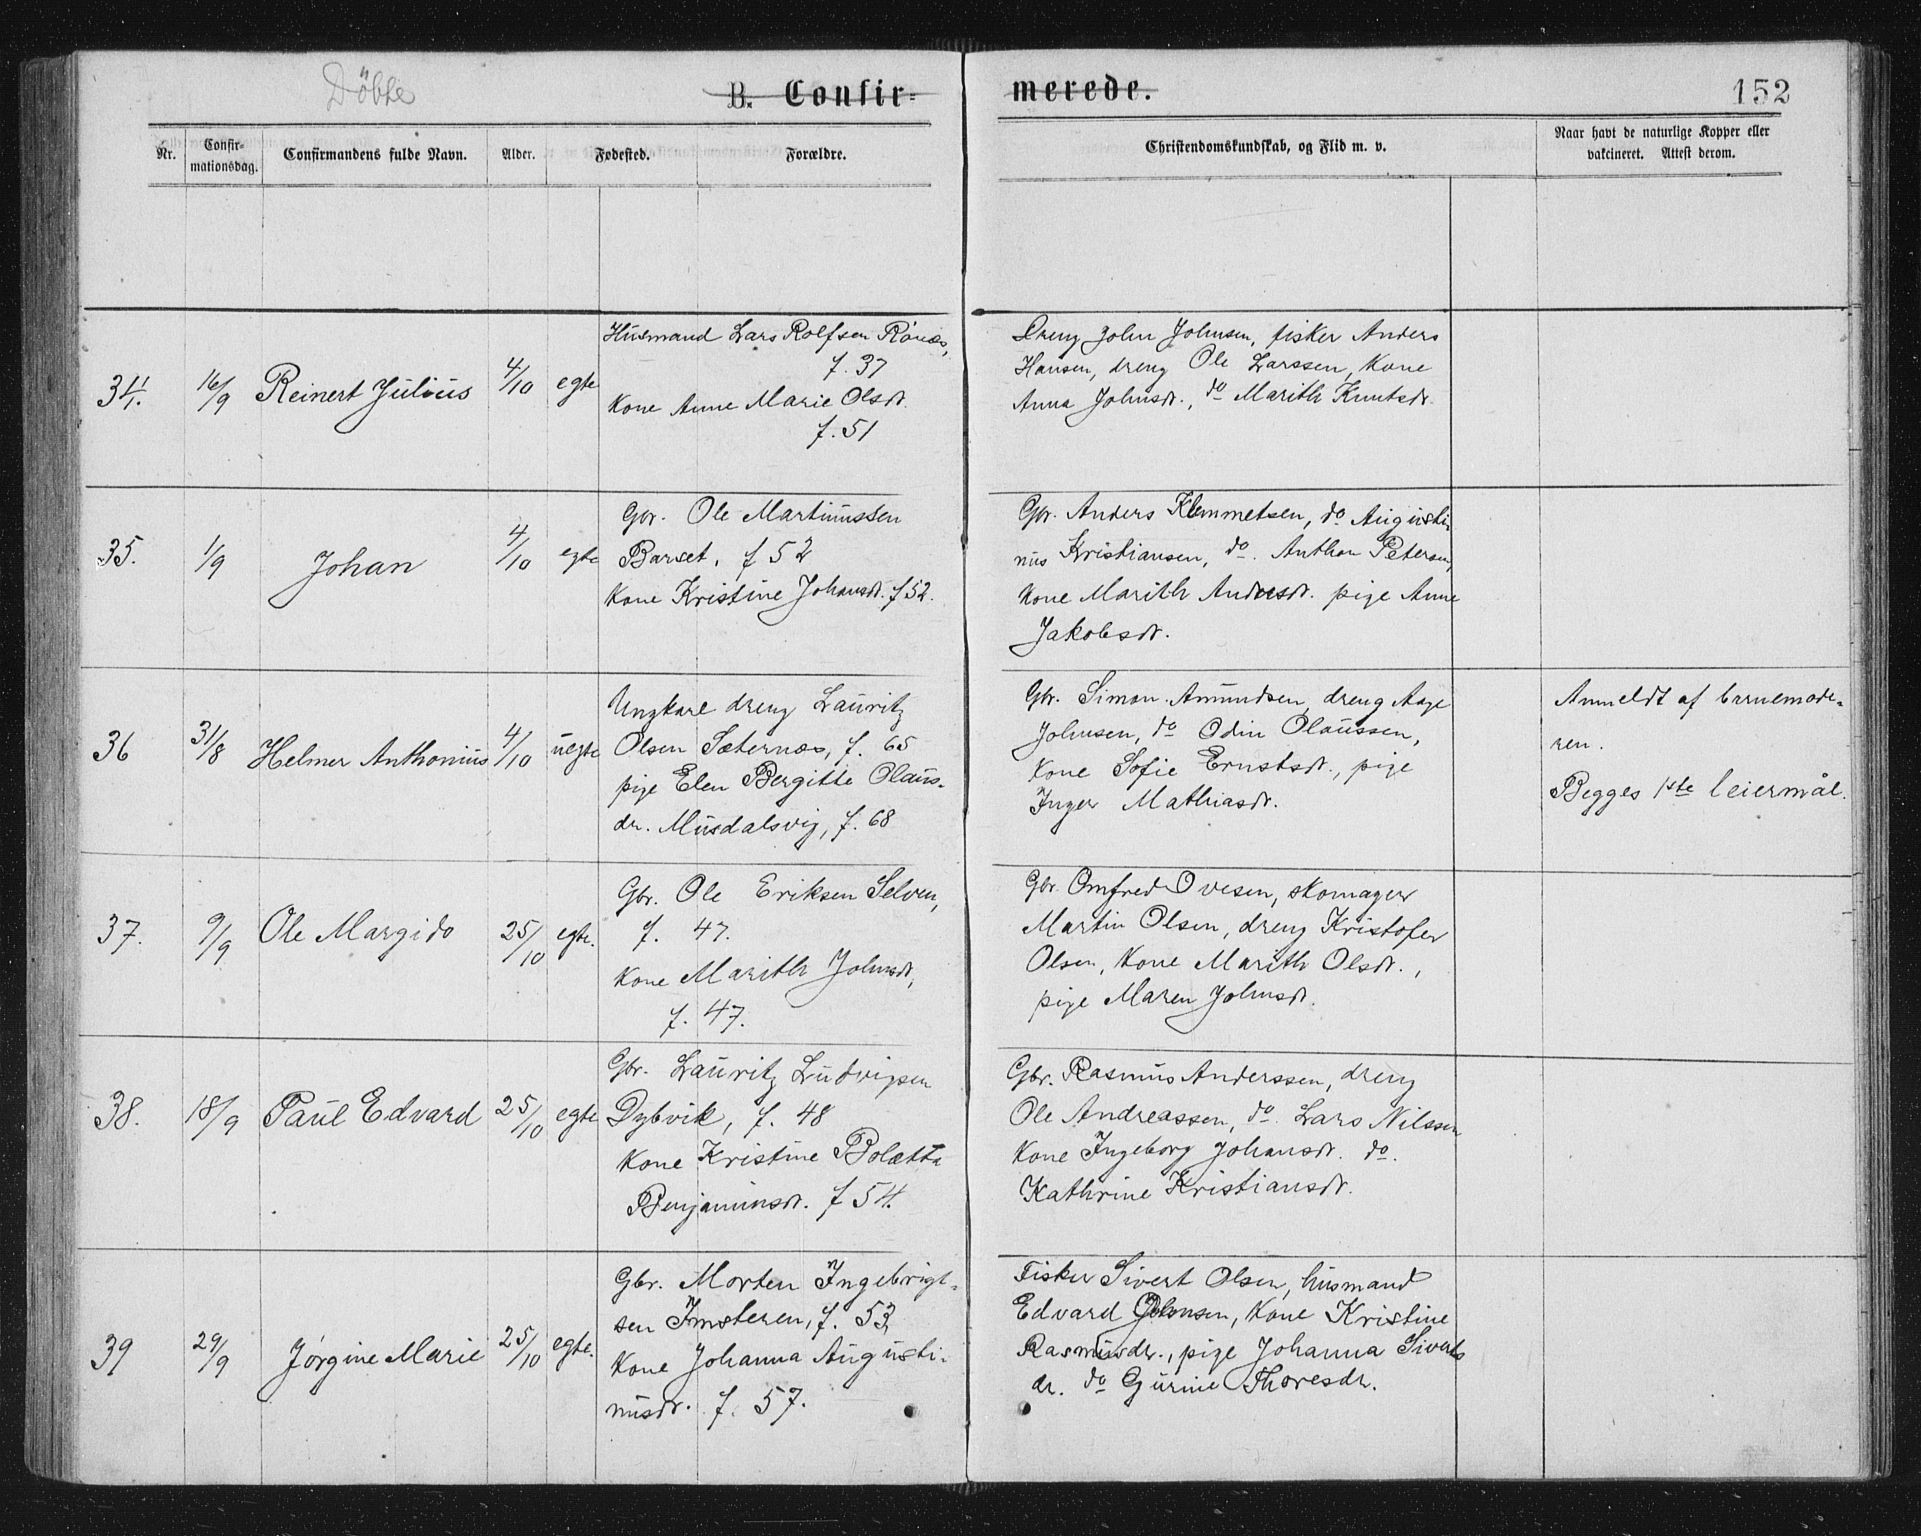 Döbte
B. Confirmerede.
152
Nr.
Confirmationsdag.
Confirmandens fulde Navn.
Alder.
Fødested.
Forældre.
Christendomskundskab, og Flid m. v.
Naar havt de naturlige Kopper eller
vakcineret. Attest derom.
34. 16/9 Reinert Julius 4/10 egte
Husmand Lars Rolfsen Rönes,
f. 37
Kone Anne Marie Olsdr.
f. 51
Dreng John Johnsen, fisker Anders
Hansen, dreng Ole Larssen, Kone
Anna Johnsdr., do Marith Knutsdr.
35. 1/9 Johan 4/10 egte
Gbr. Ole Martinussen
Barset. f 52
Kone Kristine Johansdr. f 52.
Gbr. Anders Klemmetsen, do Augusti-
nus Kristiansen, do. Anthon Petersen,
Kone Marith Andersdr. pige Anne
Jakobsdr.
36 31/8 Helmer Anthonius 4/10 uegte
Ungkarl dreng Lauritz
Olsen Sæternes, f. 65
pige Elen Bergitte Olaus-
dr. Musdalsvig, f. 68
Gbr. Simon Amundsen, dreng Aage
Johnsen, do Odin Olaussen,
Kone Sofie Ernstsdr., pige
Inger Mathiasdr.
Anmeldt af barnemode-
ren.
Begges 1ste leiermål.
37. 9/9 Ole Margido 25/10 egte.
Gbr. Ole Eriksen Selven,
f. 47.
Kone Marith Johnsdr,
f. 47.
Gbr. Omfred Ovesen, skomager
Martin Olsen, dreng Kristofer
Olsen, Kone Marith Olsdr.,
pige Maren Johnsdr.
38. 18/9 Paul Edvard 25/10 egte
Gbr. Lauritz Ludvigsen
Dybvik, f. 48
Kone Kristine Bolætta
Benjaminsdr. f 54.
Gbr. Rasmus Anderssen, dreng
Ole Andreassen, do. Lars Nilssen
Kone Ingeborg Johansdr. do.
Kathrine Kristiansdr.
39 29/9 Jørgine Marie 25/10 egte.
Gbr. Morten Ingebrigt-
sen Imsteren, f. 53,
Kone Johanna Augusti-
nusdr. f. 57.
Fisker Sivert Olsen, husmand
Edvard Johnsen, Kone Kristine
Rasmusdr., pige Johanna Siverts
dr. do Gurine Thoresdr.